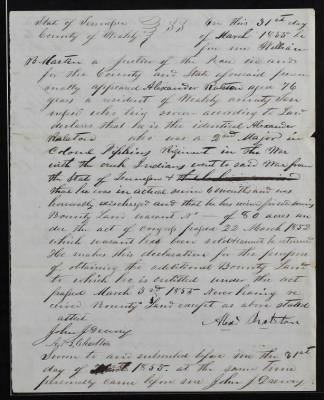 State of Tennessee
County of Weakly
On this 31st day
of March 1855 be
fore me William
B Martin a Justice of the Peace in and
for the County and State aforesaid person
ally appeared Alexander Ralston aged 76
years a resident of Weakly County Ten
nessee who being sworn according to Law
declares that he is the identical Alexander
Ralston who was a 2nd Major in
Colonel Pipkins Regiment in the War
with the creek Indians went to said War from
the State of Tennessee &
that he was in active service 6 months and was
honorably discharged and that he has since received
Bounty Land warrant No — of 80 acres un
der the act of congress passed 22 March 1852
which warrant has been sold & cannot be returned
He makes this declaration for the purpose
of obtaining the additional Bounty Land
to which he is entitled under the act
passed March 3rd 1855 Never having re
ceived Bounty Land except as above stated
attest
Alexr Ralston
John J Drewry
Sworn to and subscribed before me the 31st
day of 1855. at the same time
personally came before me John J Drewry